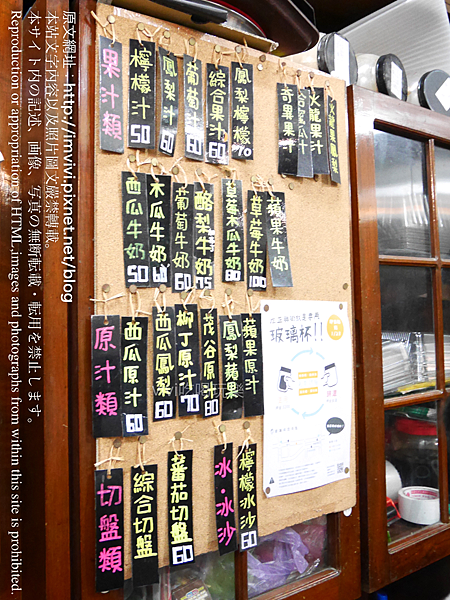 原文網址：http://imvivi.pixnet.net/blog
本站文字內容以及照片圖文嚴禁轉載。
本サイト内の記述、画像、写真の無断転載・転用を禁止します。
Reproduction or appropriation of HTML,images and photographs from within this site is prohibited.
果汁類
檸檬汁 50
鳳梨汁 60
葡萄汁
綜合果汁 60
鳳梨檸檬 70
奇異果汁
火龍果汁
西瓜牛奶 50
木瓜牛奶 60
葡萄牛奶 60
酪梨牛奶 75
草莓木瓜牛奶 80
草莓牛奶 100
蘋果牛奶
原汁類
西瓜原汁 60
西瓜鳳梨
柳丁原汁 70
茂谷原汁 80
鳳梨蘋果
蘋果原汁
玻璃杯!!
切盤類
綜合切盤
蕃茄切盤 60
冰·冰沙
檸檬冰沙 60